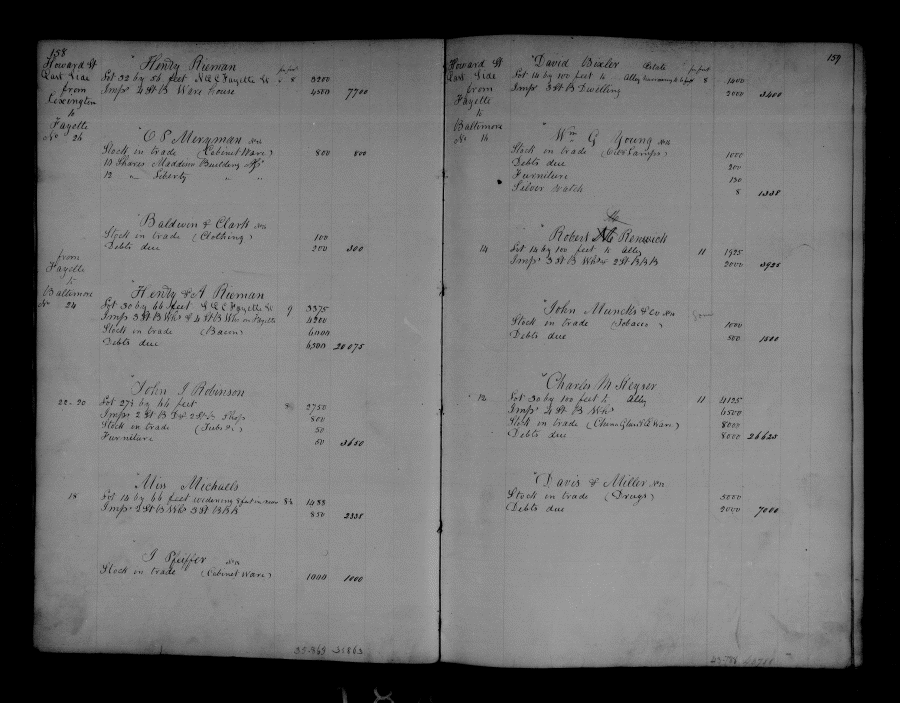 158
Howard St
East Side
from
Lexington
to
Fayette
No 26
Henry Rieman
per foot
Lot 32 by 56 feet N E C Fayette St 8 3200
Imps 4 St B Ware house 4500 7700
C S Merryman
Stock in trade (Cabinet Ware) 800 800
Shares Maddison Building
12 " Liberty " "
Baldwin & Clark
Stock in trade (Clothing) 100
Debts due 200 300
from
Fayette
to
Baltimore
No 24
Henry & A Rieman
Lot 30 by 66 feet S E C Fayette St 9 3375
Imps 3 St B Whs & 4 St B Wh on Fayette 4200
Stock in trade (Bacon) 6000
Debts due 6500 20075
John J Robinson
22-20 Lot 27½ by 66 feet 8 2750
Imps 2 St B 2 St Shop 800
Stock in trade 50
Furniture 50 3650
Miss Michaels
18 Lot 14 by 66 feet widening 8 feet in rear 8½ 1488
Imps 2 St B Whs 3 St B B B 850 2338
J Pfeiffer
Stock in trade (Cabinet Ware) 1000 1000
35863
159
Howard St
East Side
from
Fayette
to
Baltimore
No 16
David Bixler Estate
per foot
Lot 14 by 100 feet to Alley 8 1400
Imps 3 St B Dwelling 2000 3400
Wm G Young
Stock in trade 1000
Debts due 200
Furniture 130
Silver watch 8 1338
Robert Renwick
14 Lot 14 by 100 feet to Alley 11 1925
Imps 3 St B Whs 2 St B B B 2000 3925
John Muncks & Co
Stock in trade (Tobacco) 1000
Debts due 500 1500
Charles M Keyser
12 Lot 30 by 100 feet to Alley 11 4125
Imps 4 St B Whs 6500
Stock in trade (China Glass & Q Ware) 8000
Debts due 8000 26625
Davis & Miller
Stock in trade (Drugs) 5000
Debts due 2000 7000